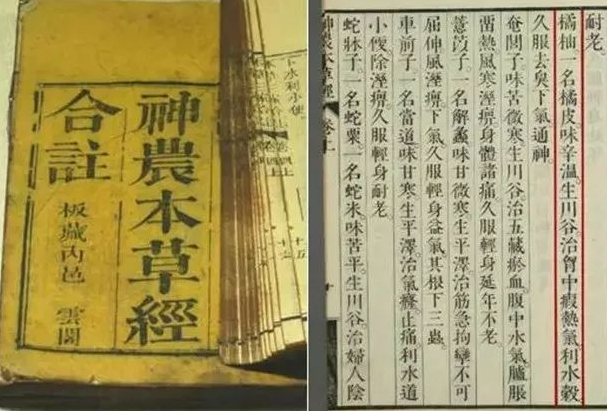 神農本草經
合註
板藏內邑 雲閣
水利小便
耐老。
橘柚一名橘皮味辛溫生川谷治胷中瘕熱氣利水穀
久服去臭下氣通神。
奄閭子味苦微寒生川谷治五藏瘀血腹中水氣臚脹
畱熱風寒溼痹身體諸痛久服輕身延年不老
薏苡子一名解蠡味甘微寒生平澤治筋急拘攣不可
屈伸風溼痹下氣久服輕身益氣其根下三蟲。
車前子一名當道味甘寒生平澤治氣癃止痛利水道
小便除溼痹久服輕身耐老
蛇牀子一名蛇粟一名蛇米味苦平生川谷治婦人陰
神農本草經 卷上